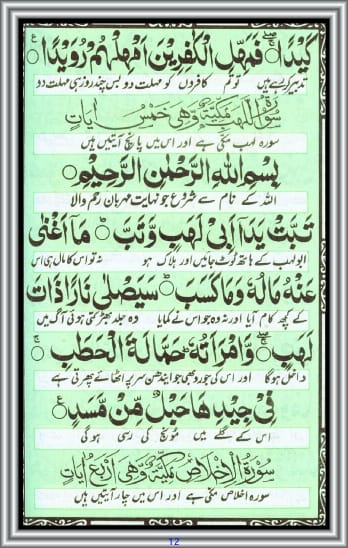 كَيْدًا ۝ فَمَهِّلِ الْكٰفِرِيْنَ اَمْهِلْهُمْ رُوَيْدًا ۝
تدبیر کر رہے ہیں تو تم کافروں کو مہلت دو بس چند روز ہی مہلت دو
سُوْرَةُ اللَّهَبِ مَكِّيَّةٌ وَّهِىَ خَمْسُ اٰيَاتٍ
سورہ لہب مکی ہے اور اس میں پانچ آیتیں ہیں
بِسْمِ اللهِ الرَّحْمٰنِ الرَّحِيْمِ ۝
اللہ کے نام سے شروع جو نہایت مہربان رحم والا
تَبَّتْ يَدَآ اَبِيْ لَهَبٍ وَّتَبَّ ۝ مَآ اَغْنٰى
ابولہب کے ہاتھ ٹوٹ جائیں اور ہلاک ہو نہ تو اس کا مال ہی اس
عَنْهُ مَالُهٗ وَمَا كَسَبَ ۝ سَيَصْلٰى نَارًا ذَاتَ
کے کچھ کام آیا اور نہ وہ جو اس نے کمایا وہ جلد بھڑکتی ہوئی آگ میں
لَهَبٍ ۝ وَّامْرَاَتُهٗ حَمَّالَةَ الْحَطَبِ ۝
داخل ہوگا اور اس کی جورو بھی جو ایندھن سر پر اٹھائے پھرتی ہے
فِيْ جِيْدِهَا حَبْلٌ مِّنْ مَّسَدٍ ۝
اس کے گلے میں مونج کی رسی ہوگی
سُوْرَةُ الْاِخْلَاصِ مَكِّيَّةٌ وَّهِىَ اَرْبَعُ اٰيَاتٍ
سورہ اخلاص مکی ہے اور اس میں چار آیتیں ہیں
12